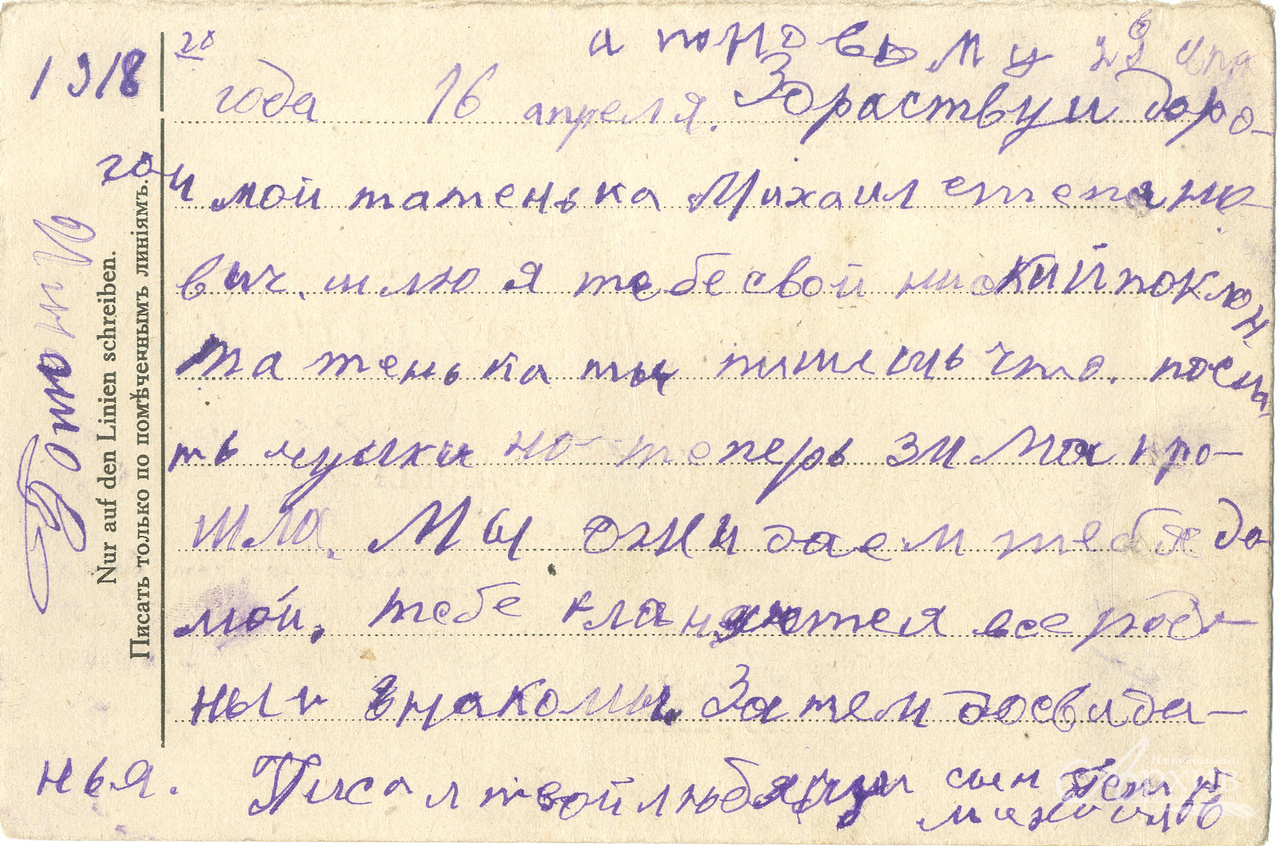 а поновому 29 апр
1918 го
года 16 апреля. Здраствуи доро-
гои мой татенька Михаил степано-
вич. шлю я тебе свой ниский поклон
татенька ты пишешь что. посла-
ть чулки но теперь зима про-
шла. Мы ожидаем тебя до
мой. тебе кланяются все родн
ныи знакомы. Затем досвида-
нья. Писал твой любящи сын Петр
михаилов
Nur auf den Linien schreiben.
Писать только по помѣченнымъ линіямъ.